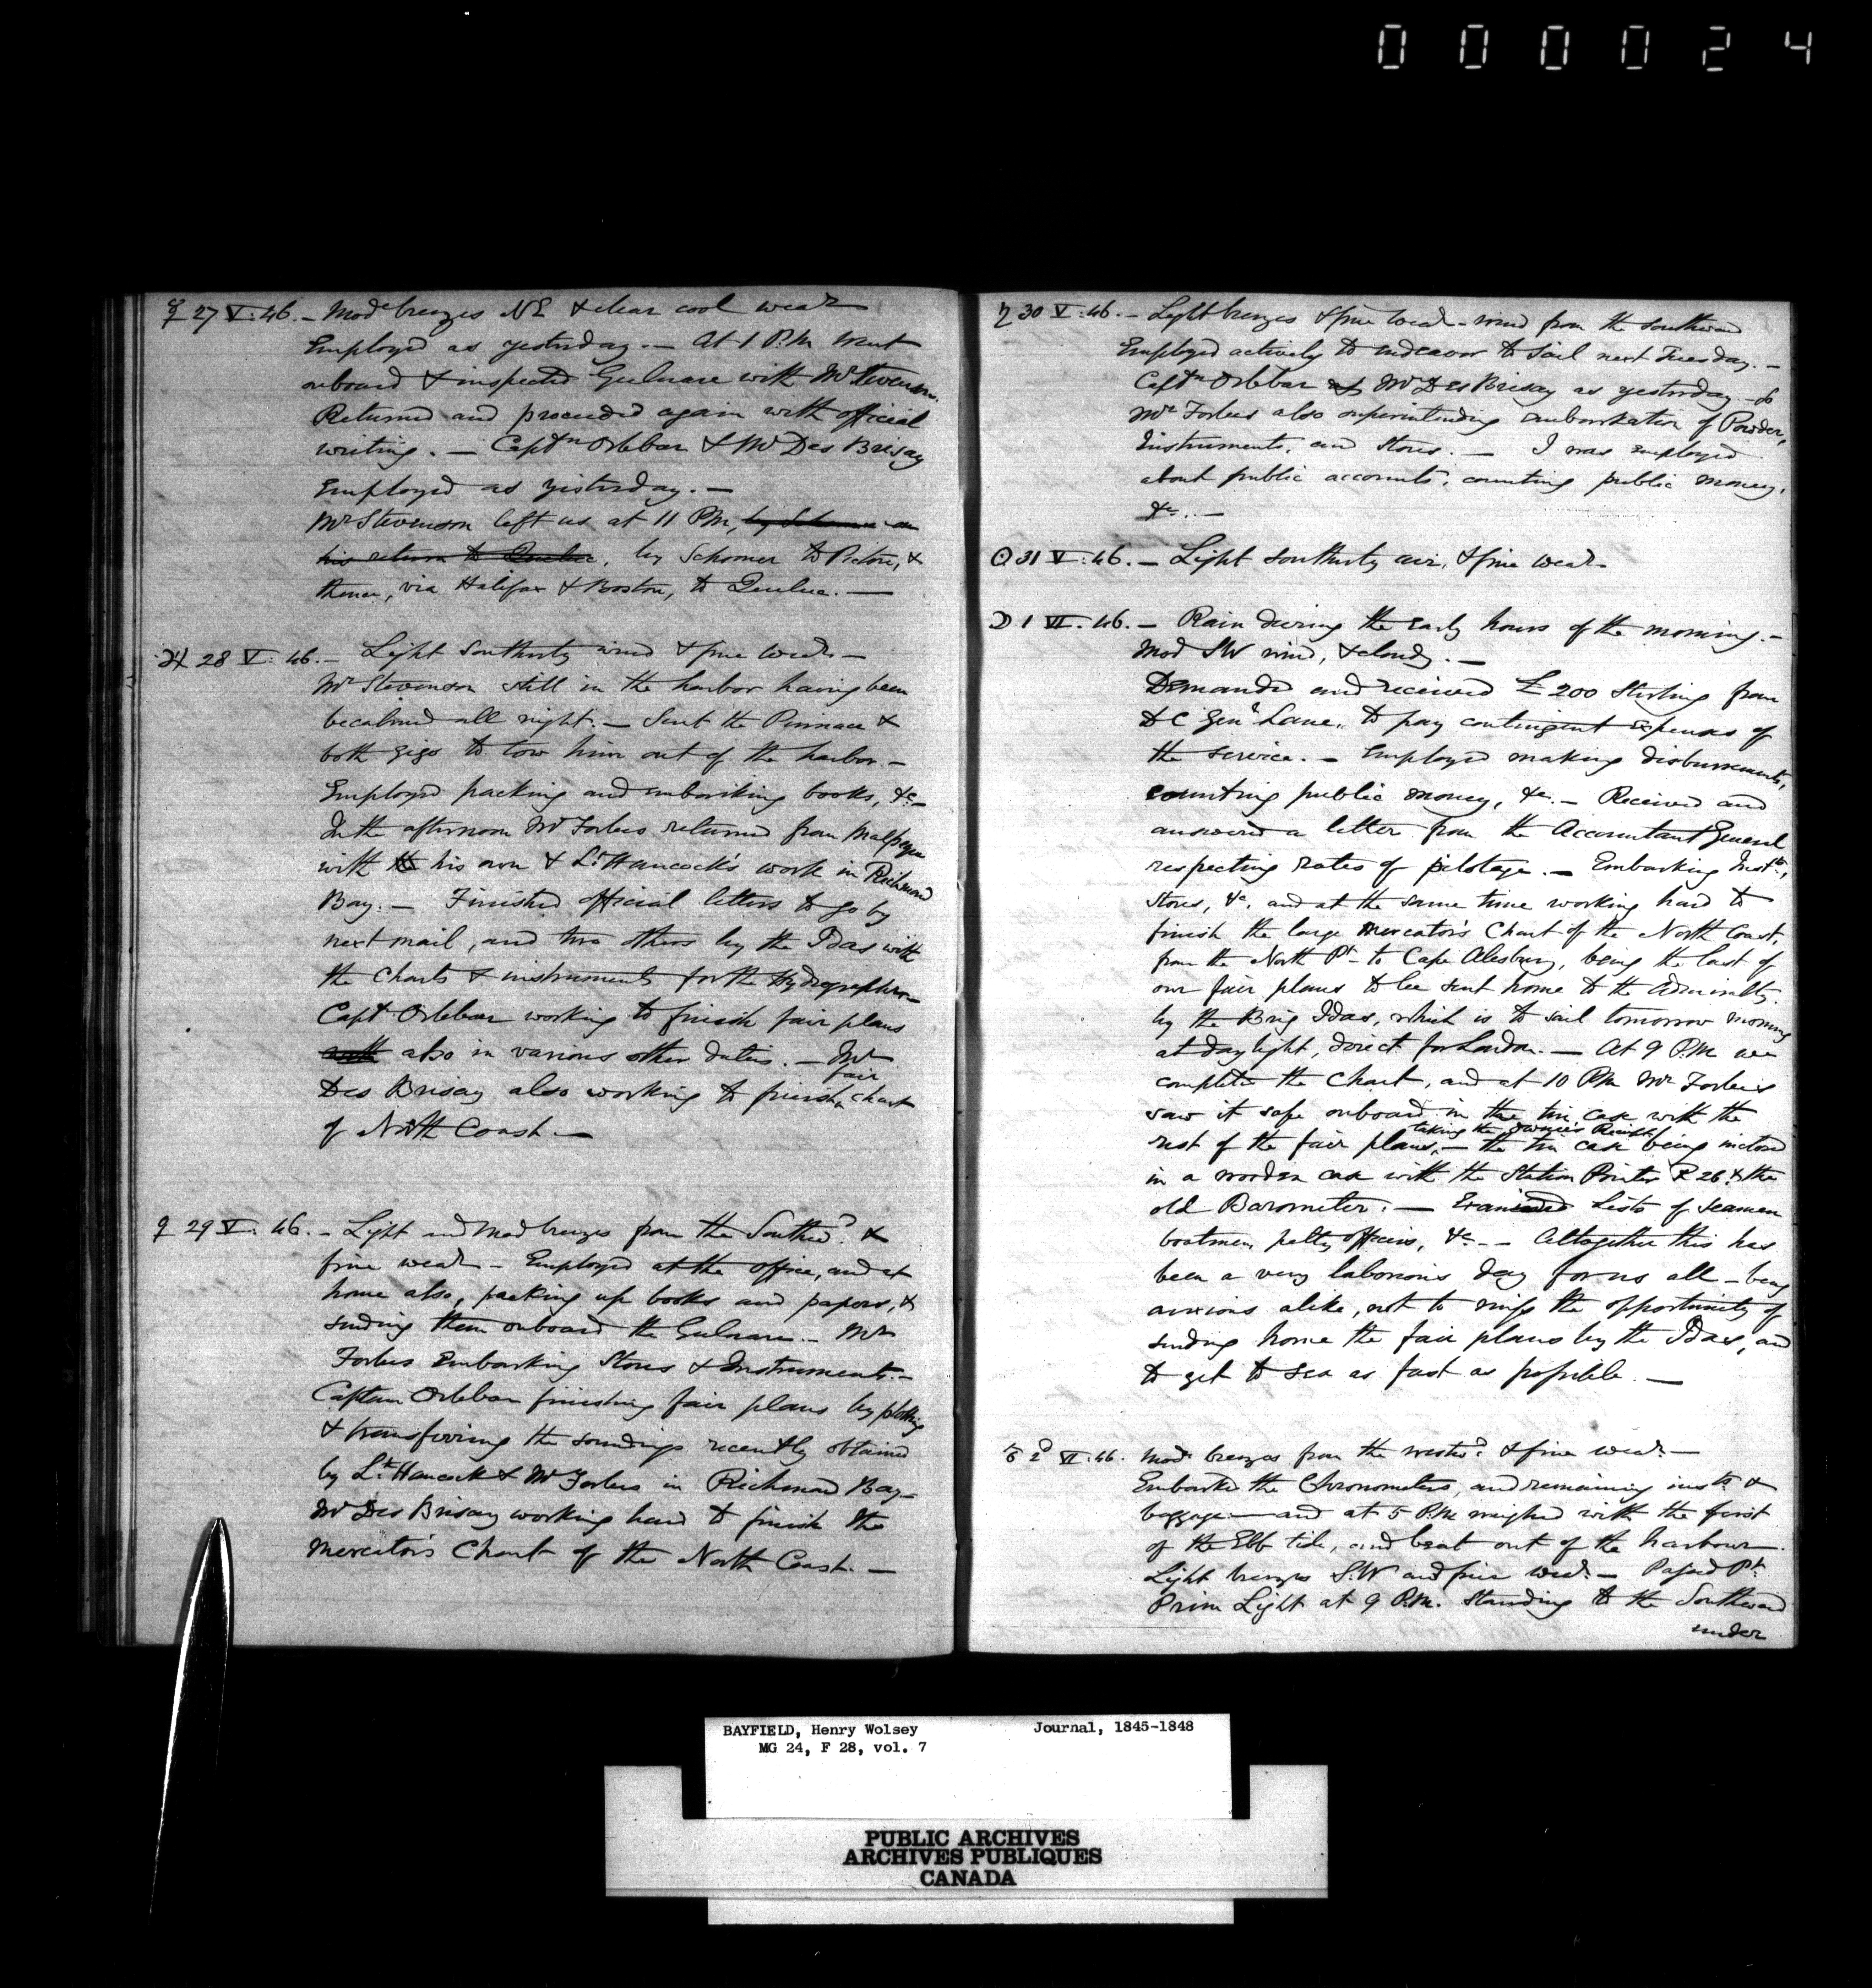 000024
☿ 27 V. 46. – Modᵉ breezes NE & clear cool weaʳ
Employed as yesterday. – At 1 P.M. went
onboard & inspected Gulnare with Mʳ Stevenson.
Returned and proceeded again with official
writing. – Captⁿ Orlebar & Mʳ Des Brisay
Employed as yesterday. –
Mʳ Stevenson left us at 11 PM, by Schooner on
his return to Quebec, by Schooner to Pictou, &
thence, via Halifax & Boston, to Quebec. –
♃ 28 V. 46. – Light Southerly wind & fine weaʳ –
Mʳ Stevenson still in the harbor having been
becalmed all night. – Sent the Pinnace &
both gigs to tow him out of the harbor. –
Employed packing and embarking books, &c –
In the afternoon Mʳ Forbes returned from Malpeque
with his own & Lᵗ Hancock's work in Richmond
Bay. – Finished official letters to go by
next mail, and two others by the Idas with
the Charts & instruments for the Hydrographer –
Captⁿ Orlebar working to finish fair plans
also in various other duties. – Mʳ
Des Brisay also working to finish fair chart
of North Coast. –
♀ 29 V. 46. – Light and Mod breezes from the Southᵈ. &
fine weaʳ – Employed at the office, and at
home also, packing up books and papers, &
sending them onboard the Gulnare. – Mʳ
Forbes Embarking Stores & Instruments. –
Captain Orlebar finishing fair plans by plotting
& transferring the soundings recently obtained
by Lᵗ Hancock & Mʳ Forbes in Richmond Bay –
Mʳ Des Brisay working hard to finish the
Mercator's Chart of the North Coast. –
♄ 30 V. 46. – Light breezes & fine weaʳ – wind from the southward
Employed actively to endeavor to sail next Tuesday. –
Captⁿ Orlebar & Mʳ Des Brisay as yesterday – &
Mʳ Forbes also superintending embarkation of Powder,
Instruments, and Stores. – I was employed
about public accounts, counting public money,
&c. –
☉ 31 V. 46. – Light southerly air, & fine weaʳ
☽ 1 VI. 46. – Rain during the early hours of the morning. –
Mod SW wind, & cloudy. –
Demanded and received £200 Sterling from
D C Genˡ Lane, to pay contingent expenses of
the service. – Employed making disbursements,
counting public money, &c. – Received and
answered a letter from the Accountant General
respecting rates of pilotage. – Embarking Instᵗˢ,
Stores, &c, and at the same time working hard to
finish the large Mercator's Chart of the North Coast,
from the North Pᵗ to Cape Alesbury, being the last of
our fair plans to be sent home to the Admiralty
by the Brig Idas, which is to sail tomorrow morning
at daylight, direct for London. – At 9 P.M. we
completed the Chart, and at 10 PM Mʳ Forbes
saw it safe onboard in the tin case with the
rest of the fair plans, taking the owner's Receipt – the tin case being inclosed
in a wooden case with the Station Pointer R 26 & the
old Barometer. – Examined Lists of Seamen
boatmen, petty officers, &c. – Altogether this has
been a very laborious day for us all – being
anxious alike, not to miss the opportunity of
sending home the fair plans by the Idas, and
to get to sea as fast as possible. –
♂ 2ᵈ VI. 46. Modᵉ breezes from the westᵈ. & fine weaʳ –
Embarked the Chronometers, and remaining instᵗˢ &
baggage – and at 5 P.M. weighed with the first
of the Ebb tide, and beat out of the harbour.
Light breezes S.W and fine weaʳ. – Passed Pᵗ
Prim Light at 9 P.M. standing to the Southward
under
BAYFIELD, Henry Wolsey Journal, 1845-1848
MG 24, F 28, vol. 7
PUBLIC ARCHIVES
ARCHIVES PUBLIQUES
CANADA